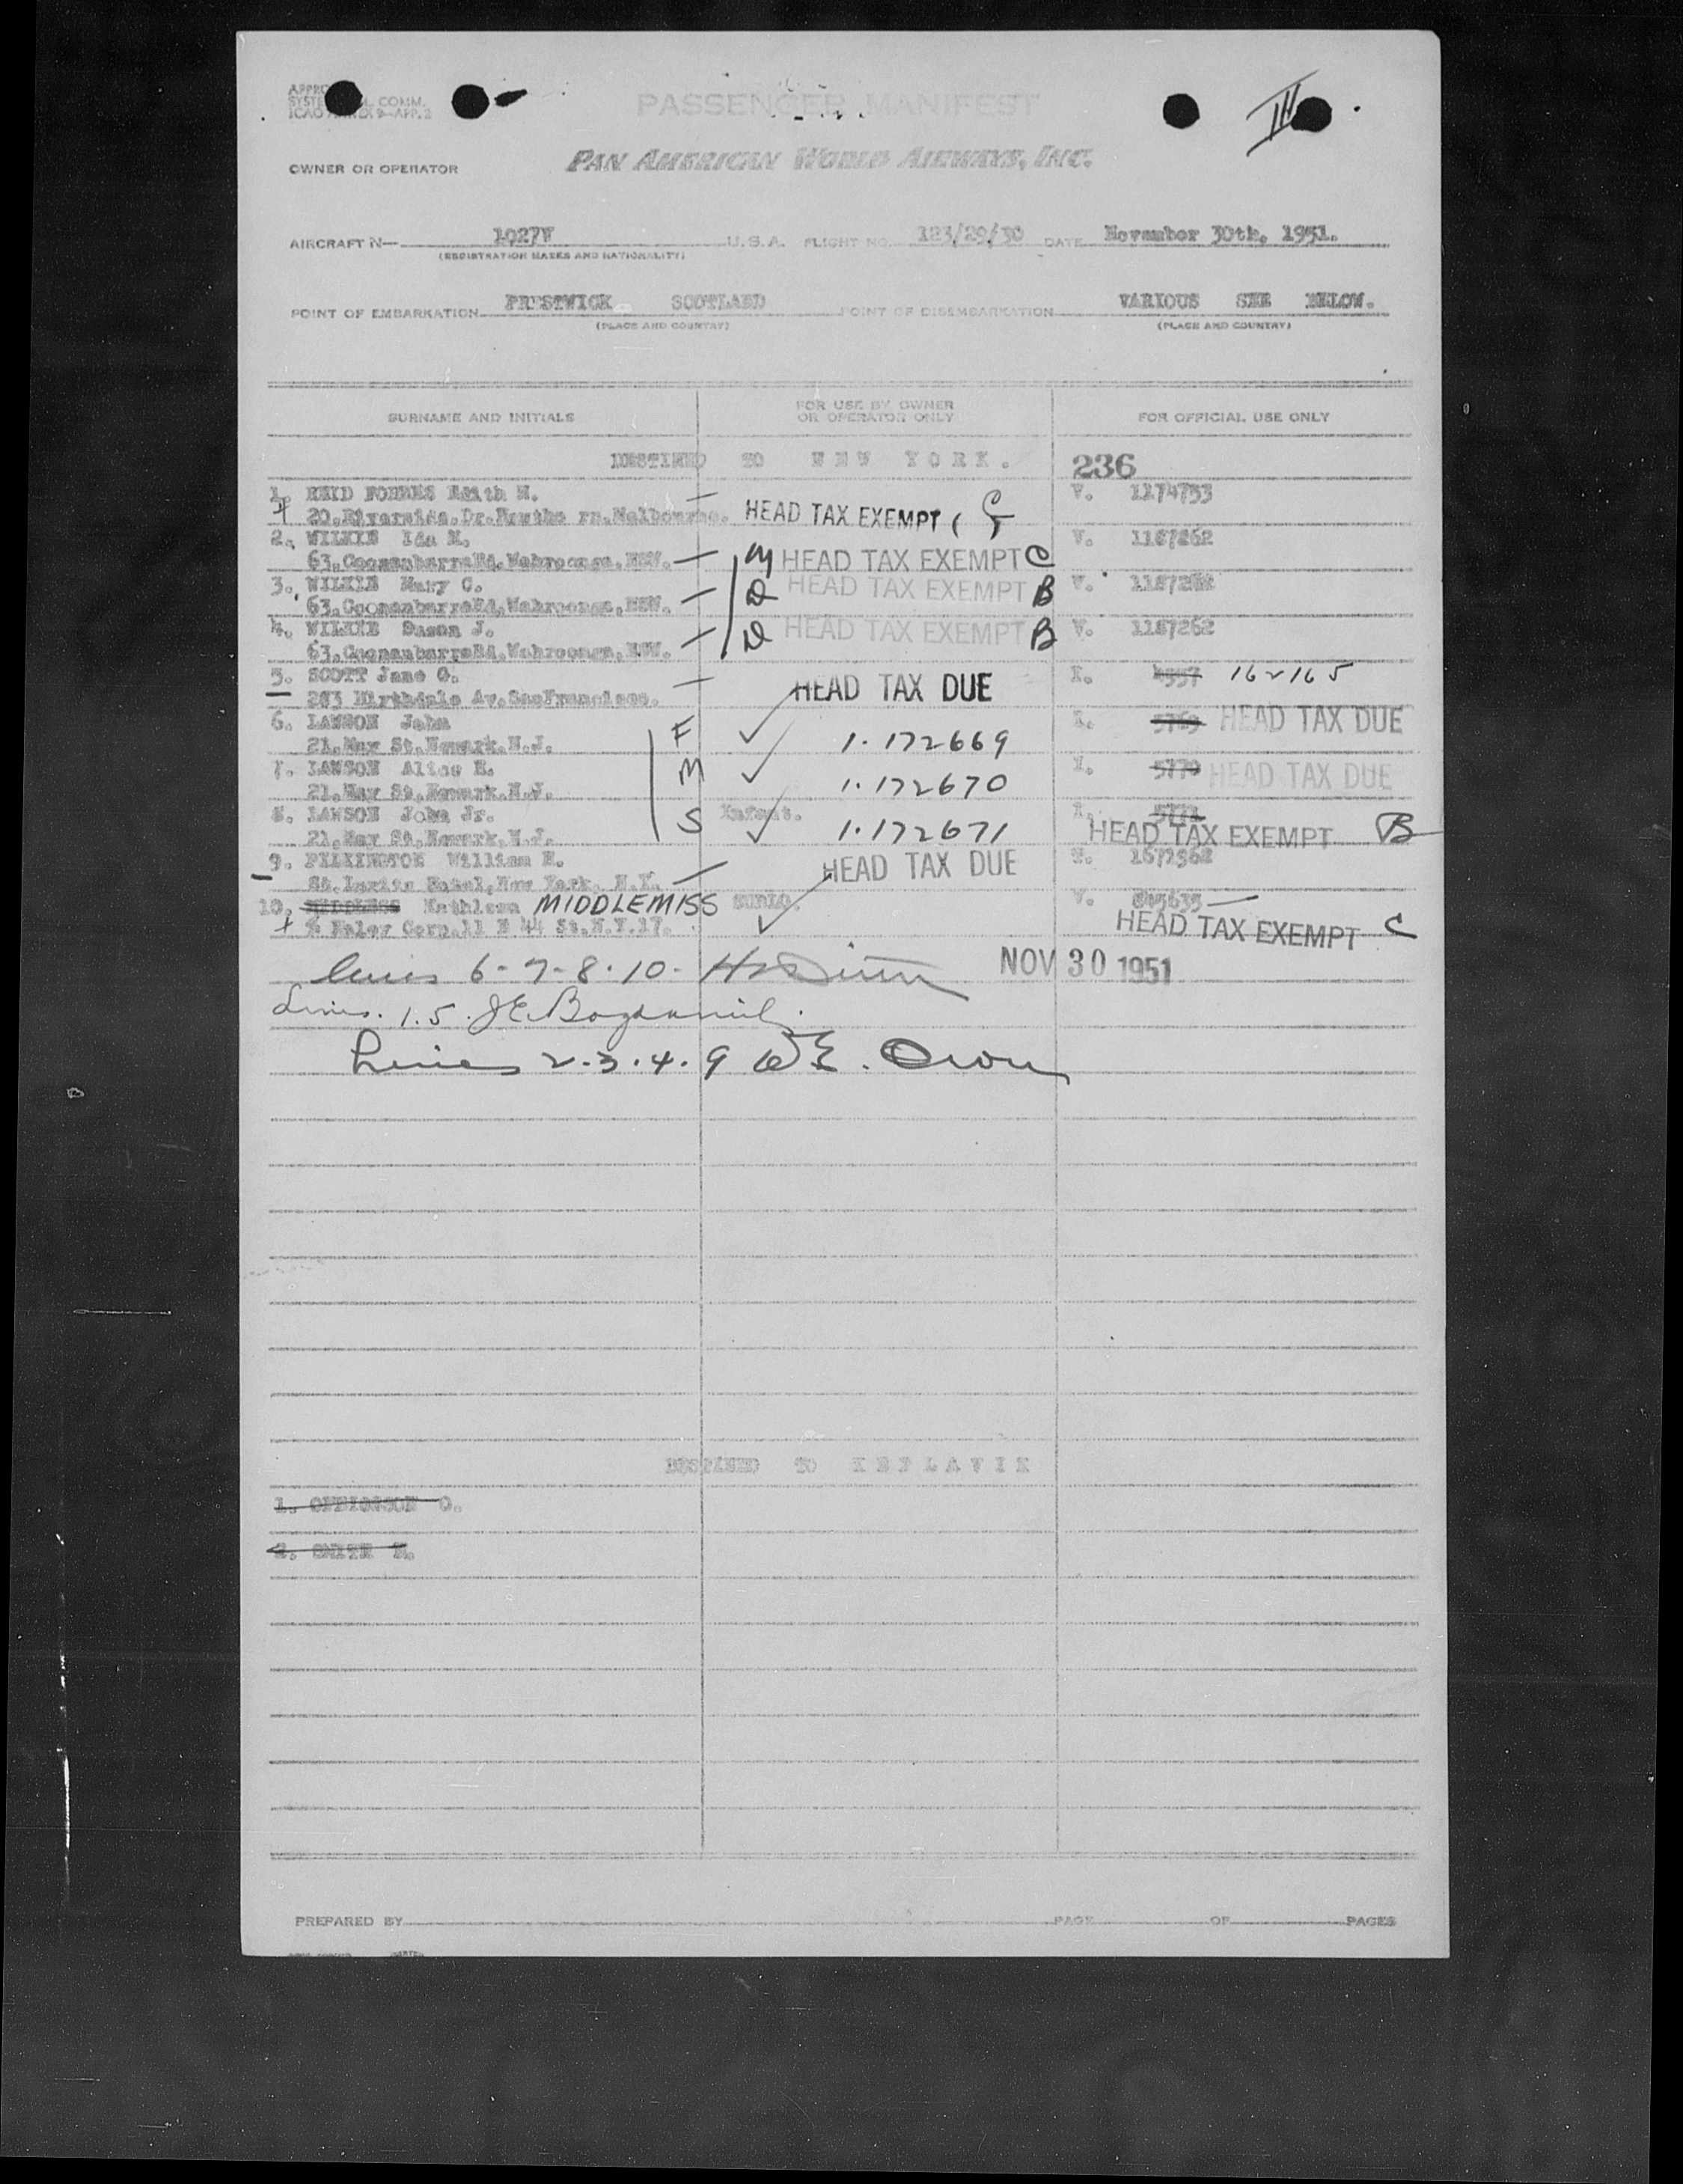 PASSENGER MANIFEST
III
ICAO ANNEX 9-APP. 2
OWNER OR OPERATOR PAN AMERICAN WORLD AIRWAYS, INC.
AIRCRAFT N- 1027V U.S.A. FLIGHT NO. 123/29/30 DATE November 30th, 1951.
(REGISTRATION MARKS AND NATIONALITY)
POINT OF EMBARKATION PRESTWICK SCOTLAND POINT OF DISEMBARKATION VARIOUS SEE BELOW.
(PLACE AND COUNTRY) (PLACE AND COUNTRY)
SURNAME AND INITIALS FOR USE BY OWNER OR OPERATOR ONLY FOR OFFICIAL USE ONLY
DESTINED TO NEW YORK. 236
1. REID FORBES Edith V. 1174753
20.Riverside.Dr. Melbourne. HEAD TAX EXEMPT
2. WILKIE Ida M. V. 1187262
63.CoonanbarraRd.Wahroonga.NSW. M HEAD TAX EXEMPT C
3. WILKIE Mary C. V.
63.CoonanbarraRd.Wahroonga.NSW. D HEAD TAX EXEMPT B
4. WILKIE Susan J. V. 1187262
63.CoonanbarraRd.Wahroonga.NSW. D HEAD TAX EXEMPT B
5. SCOTT Jane O. 162165
Av.SanFrancisco. HEAD TAX DUE
6. LAWSON John F 5769 HEAD TAX DUE
21.May St.Newark.N.J. 1.172669
7. LAWSON Alice M 5770 HEAD TAX DUE
21.May St.Newark.N.J. 1.172670
8. LAWSON John Jr. S Infant.
21.May St.Newark.N.J. 1.172671 HEAD TAX EXEMPT B
9. PILKINGTON William
St. Hotel,New York. N.Y. HEAD TAX DUE
10. Kathleen MIDDLEMISS V. 845635
44 St.N.Y.17. HEAD TAX EXEMPT C
Lines 6-7-8-10- NOV 30 1951
Lines. 1.5.
Lines 2-3.4.9
DESTINED TO KEFLAVIK
1. O.
2. SMITH
PREPARED BY PAGE OF PAGES